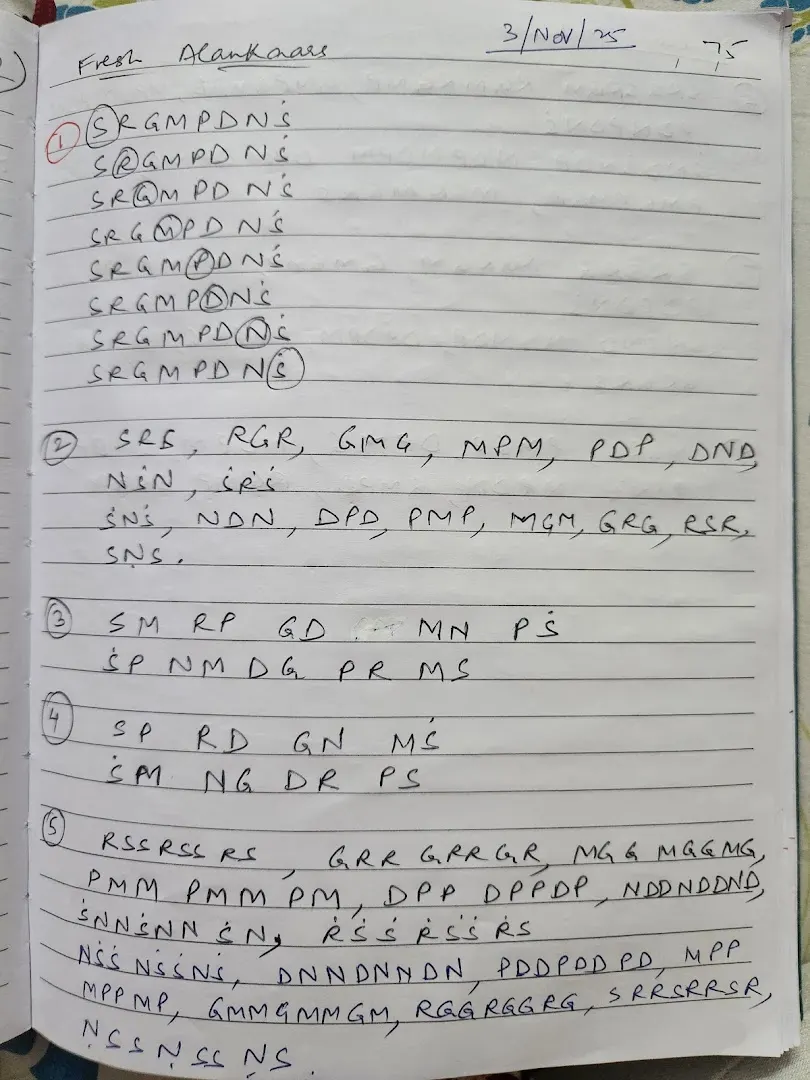 3/Nov/25
Fresh Alankaars
75
① SRGMPDNṠ
SRGMPDNṠ
SRGMPDNṠ
SRGMPDNṠ
SRGMPDNṠ
SRGMPDNṠ
SRGMPDNṠ
SRGMPDNṠ
② SRS, RGR, GMG, MPM, PDP, DND,
NṠN, ṠṘṠ
ṠNṠ, NDN, DPD, PMP, MGM, GRG, RSR,
SṆS.
③ SM RP GD MN PṠ
ṠP NM DG PR MS
④ SP RD GN MṠ
ṠM NG DR PS
⑤ RSSRSS RS, GRR GRRGR, MGG MGGMG,
PMM PMM PM, DPP DPPDP, NDDNDDND,
ṠNNṠNN ṠN, ṘṠṠ ṘṠṠ ṘS
NṠṠ NṠṠNṠ, DNNDNNDN, PDDPDDPD, MPP
MPPMP, GMMGMMGM, RGGRGGRG, SRRSRRSR,
ṆSS ṆSS ṆS.